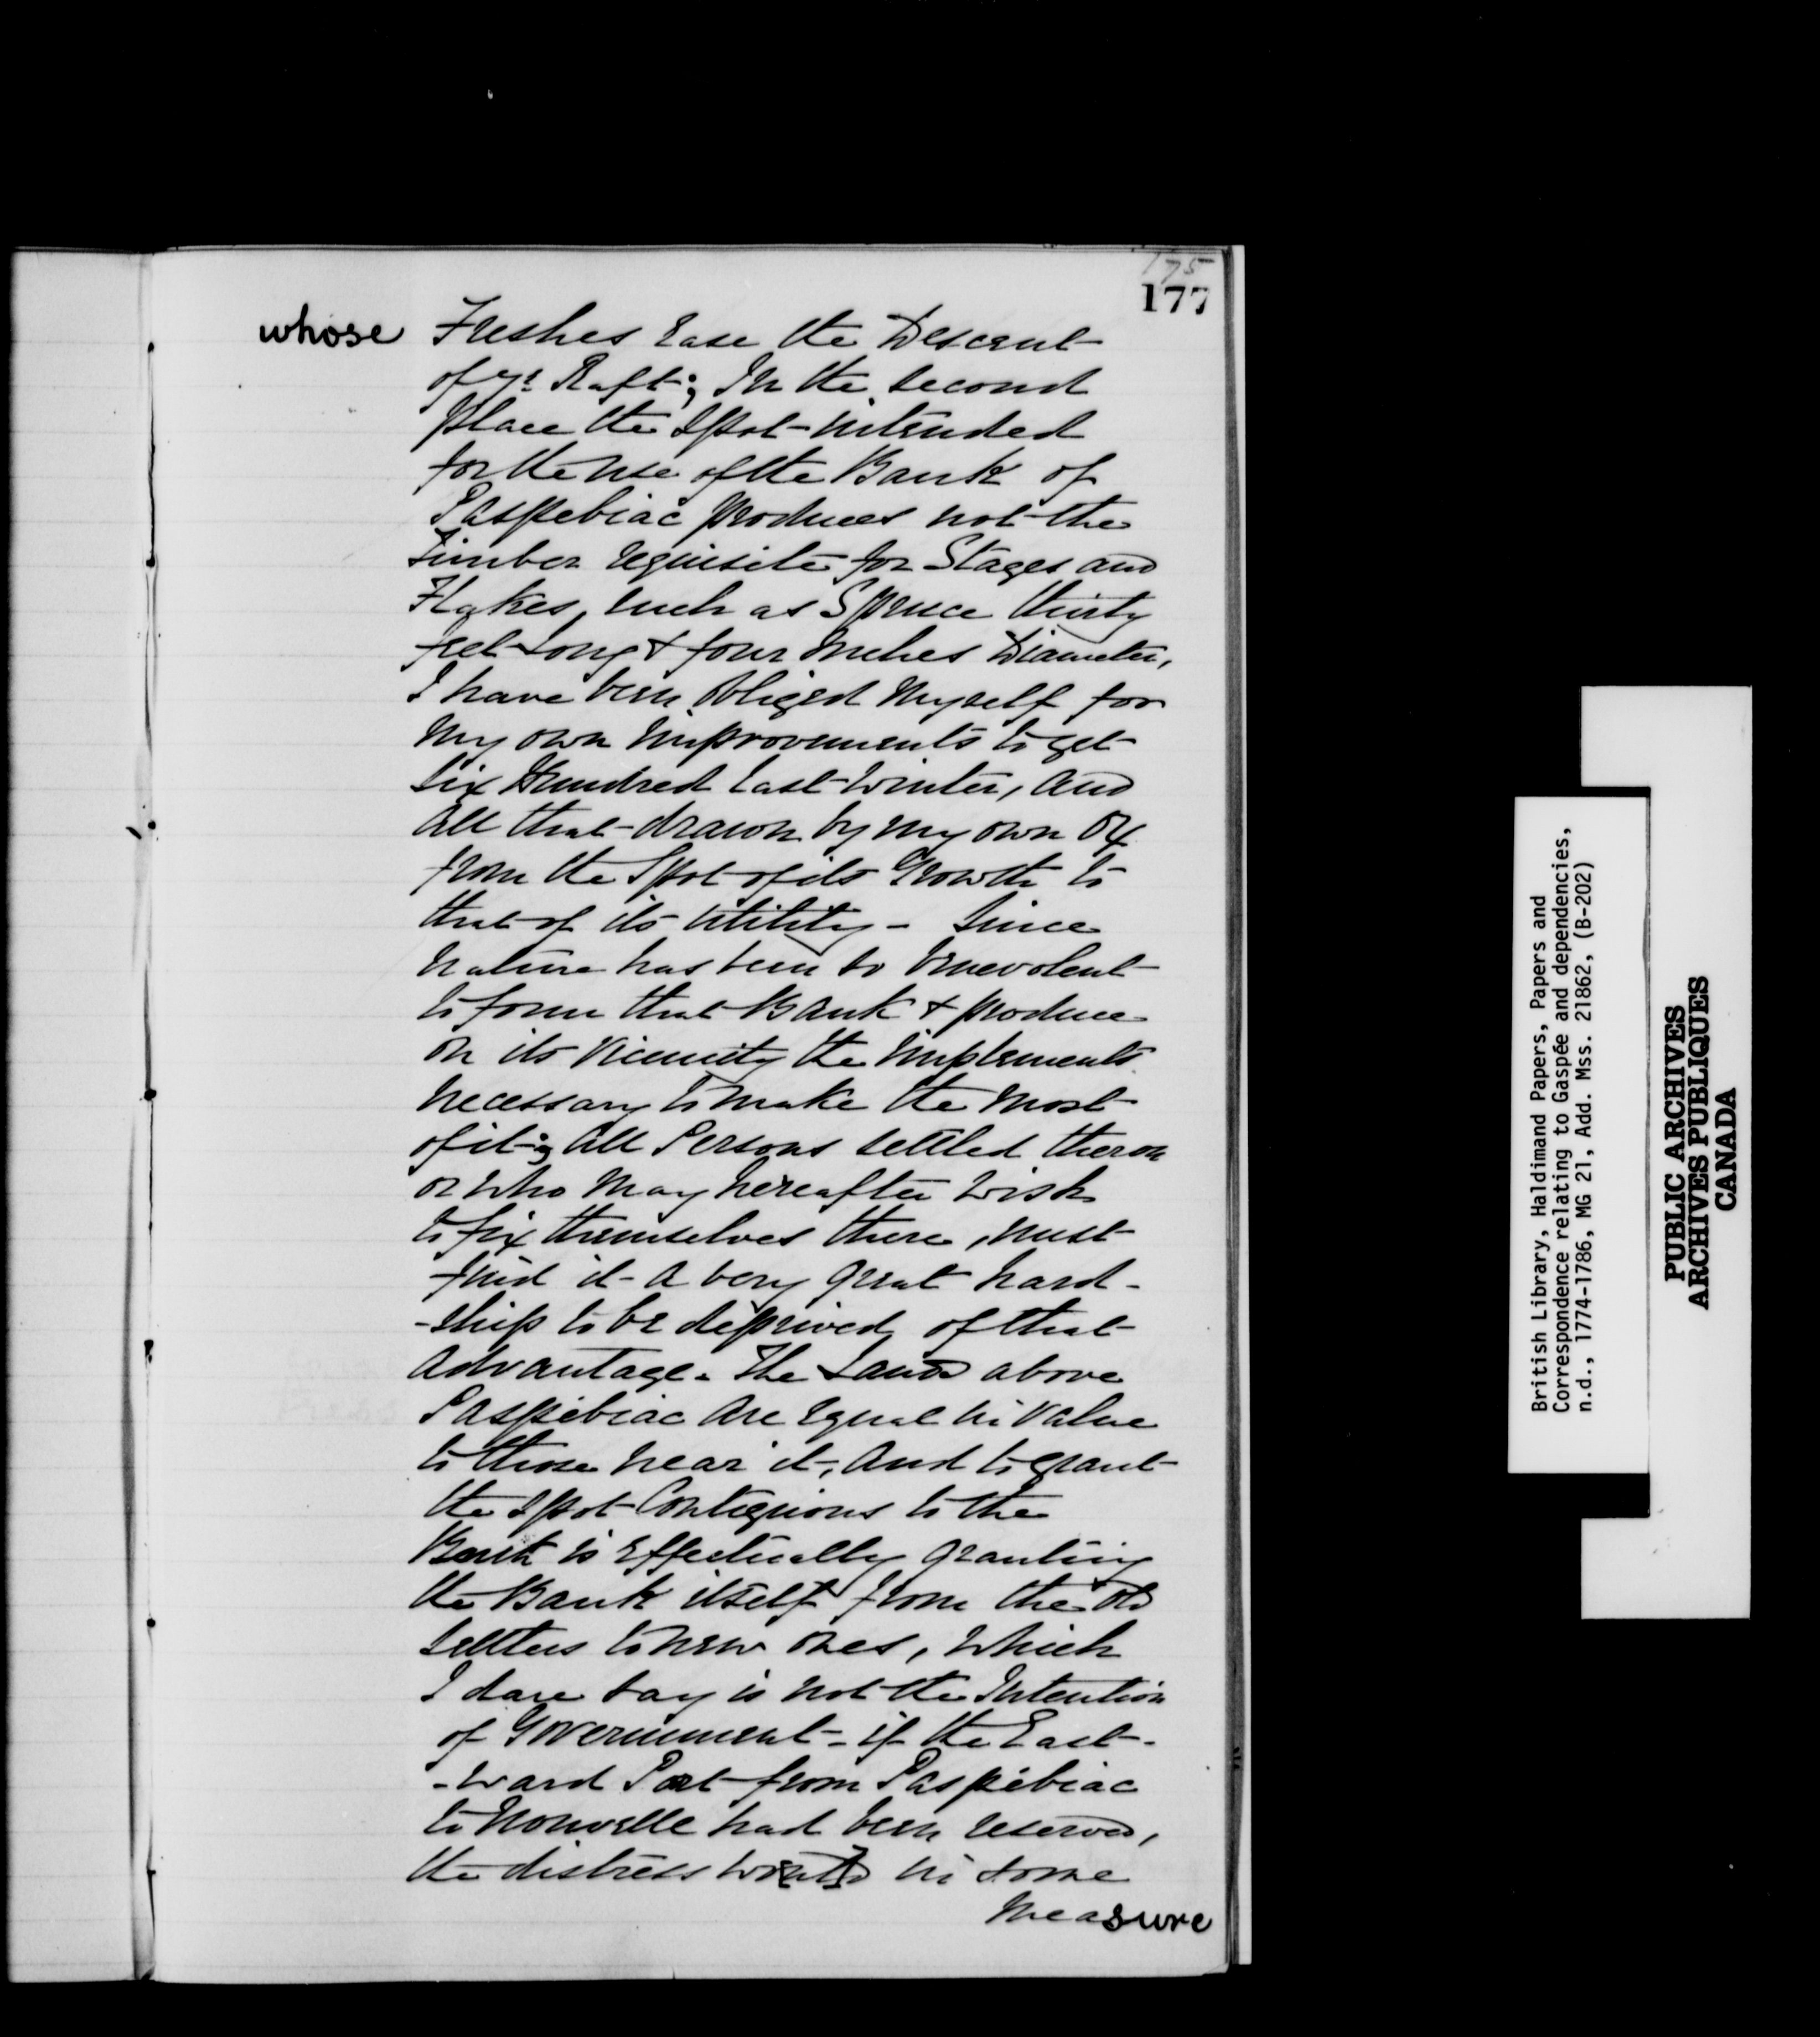 175
177
whose Freshes ease the Descent
of yr Raft; In the second
place the Spot intended
for the use of the Bank of
Paspebiac produces not the
Timber requisite for Stages and
Flakes, such as Spruce thirty
feet Long & four Inches Diameter,
I have been obliged Myself for
My own Improvements to get
Six Hundred last Winter, and
all that drawn by my own Ox
from the Spot of its Growth to
that of its utility - Since
Nature has been so benevolent
to form that Bank & produce
on its Vicinity the Implements
necessary to make the most
of it; all Persons settled theron
or who May hereafter wish
to fix themselves there, must
find it a very great hard-
-ship to be deprived of that
Advantage. The Land above
Paspébiac are equal in Value
to those near it, and to grant
the spot Contiguous to the
Bank is Effectually granting
the Bank itself from the old
settlers to new ones, which
I dare say is not the Intention
of Government - if the East-
-ward Part from Paspébiac
to Nouvelle had been reserved,
the distress would in some
Measure
British Library, Haldimand Papers, Papers and
Correspondence relating to Gaspée and dependencies,
n.d., 1774-1786, MG 21, Add. Mss. 21862, (B-202)
PUBLIC ARCHIVES
ARCHIVES PUBLIQUES
CANADA